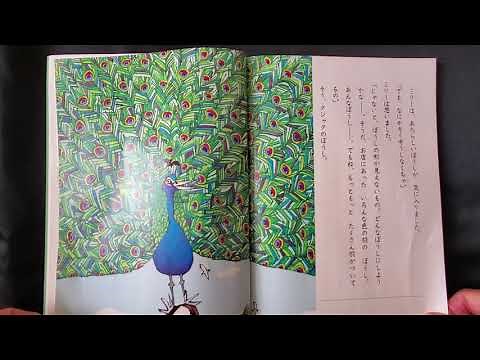 ミリーは、あたらしいぼうしが 気に入りました。
「でも、なにかそうぞうしなくちゃ」
ミリーは思いました。
「じゃないと、ぼうしの形が見えないもの。どんなぼうしにしよう
かな――。そうだ、お店にあった いろんな色の羽の ぼうし。
あんなぼうし――。でもね、もっともっと たくさん羽がついて
るの」
そう、クジャクのぼうし。